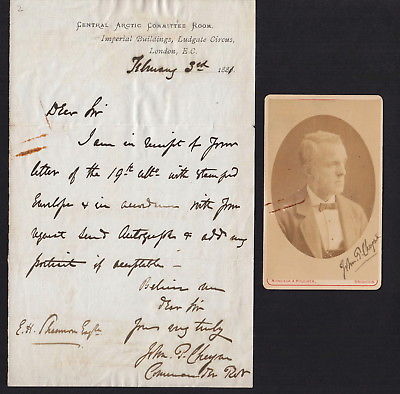 2
Central Arctic Committee Room.
Imperial Buildings, Ludgate Circus,
London, E.C.
February 3rd 1881
Dear Sir
I am in receipt of your
letter of the 19th ulto with stamped
Envelope & in accordance with your
request send Autographs & add my
portrait if acceptable -
Believe me
Dear Sir
Yours very truly
E. H. Esqre
John P. Cheyne
Commander R.N.
John P. Cheyne